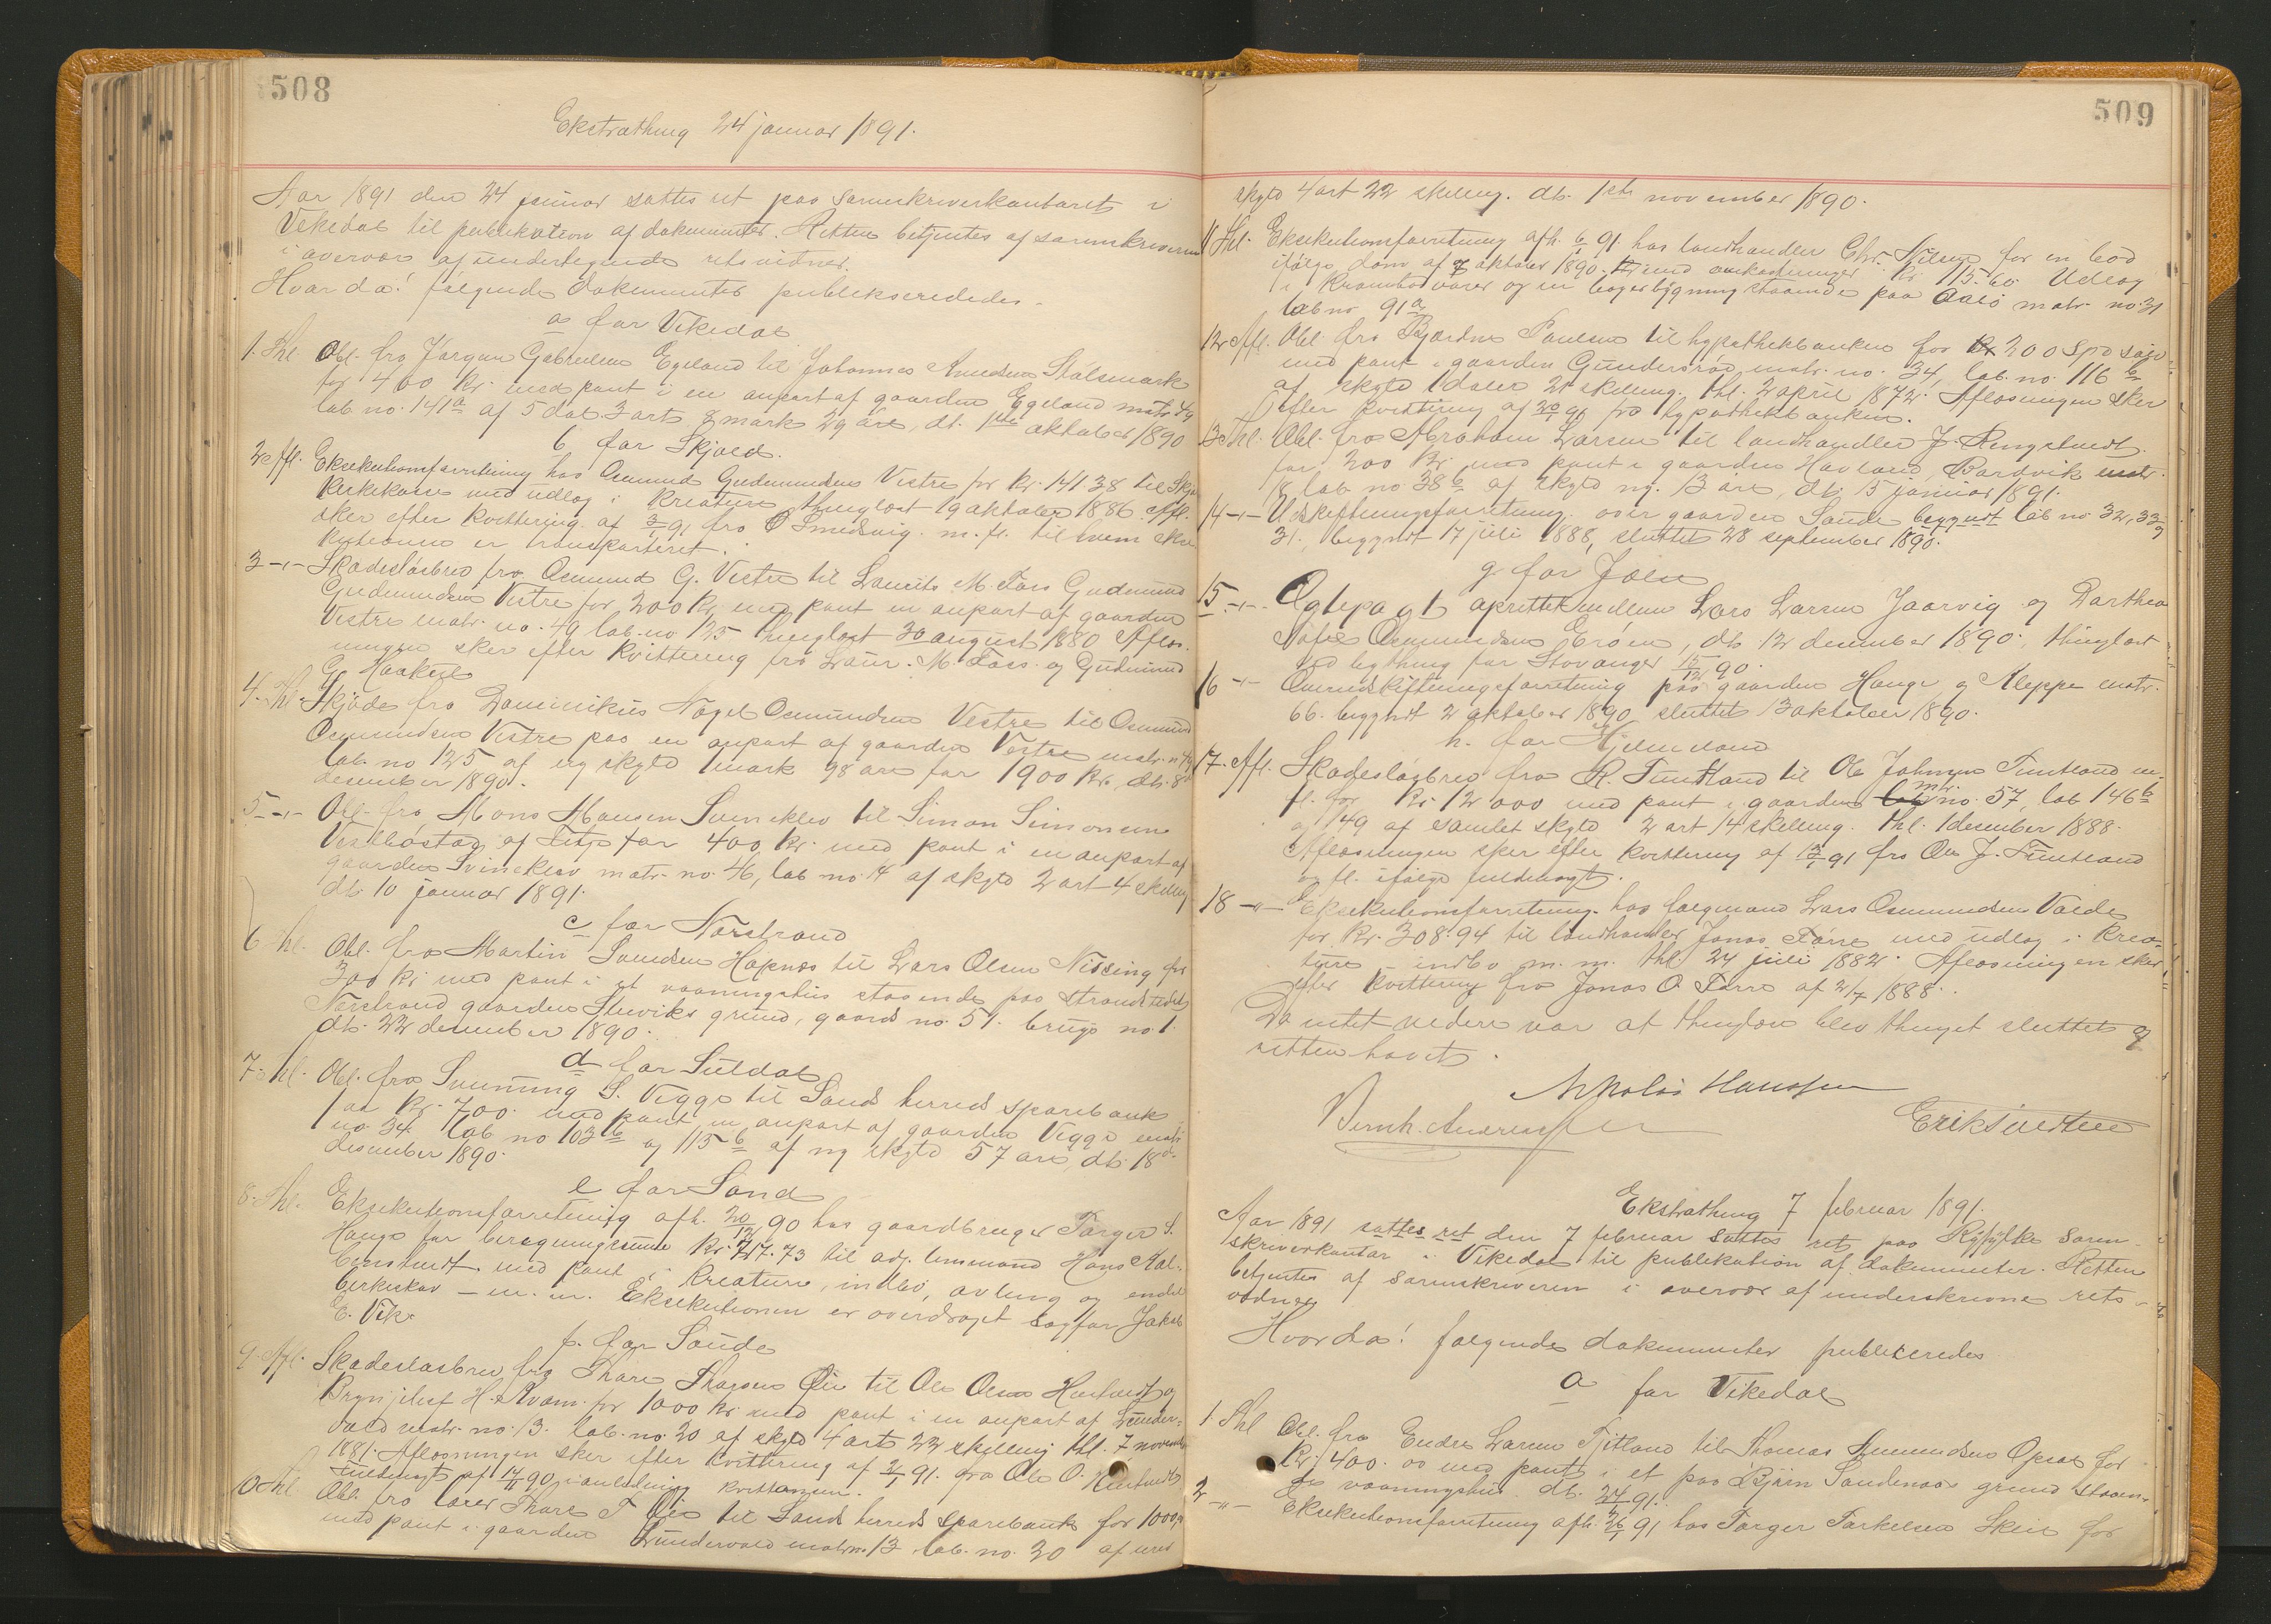 508
Ekstrathing 24 januar 1891.
Aar 1891 den 24 januar sattes ret paa sorenskriverkontoret i
Vikedal til publikation af dokumenter. Retten betjentes af sorenskriveren
i overvær af undertegnede retsvidner.
Hvorda! følgende dokumenter publiseredes.
a for Vikedal
1. Thl. Obl. fra Jørgen Gabrielsen Egeland til Johannes Amundsen Stålesmark
for 400 Kr. med pant i en anpart af gaarden Egeland matr 49
lab no. 141a af 5 dal. 3 art 8 mark 29 øre, dt. 1ste oktober 1890
b for Skjold.
2. Afl. Eksekutionsforretning hos Osmund Gudmundsen Vestre for Kr. 141 38 til Skjo
Kirkekasse med udlog i Kreature thinglæst 19 oktober 1886. Afl.
sker efter kvittering af 3/1 91 fra O Smedsvig m. fl. til hvem ekse
kutionen er transporteret.
3 -"- Skadesløsbrev fra Osmund G. Vestre til Laurits M. Foss Gudmund
Gudmundsen Vestre for 200 Kr med pant en anpart af gaarden
Vestre matr. no. 49 lab. no 125 thinglæst 30 august 1880 Afløs-
ningen sker efter kvittering fra Laur. M. Foss. og Gudmund
G. Haakul
4. Thl Skjøde fra Dominikus Nagel Osmundsen Vestre til Osmund
Osmundsen Vestre paa en anpart af gaarden Vestre matr. n 49
lab. no 125 af ny skyld 1 mark 98 øre for 1900 Kr, dt. 8de
desember 1890.
5 -"- Obl. fra Mons Monsen Svineklev til Simon Simonsen
Vestbøstad af for 400 kr. med pant i en anpart af
gaarden Svineklev matr. no. 46, lab no. 14 af skyld 2 art 4 skelling
dt. 10 januar 1891.
c for Nærstrand
6 Thl. Obl. fra Martin Svendsen Hapnes til Lars Olsen Nissing for
300 kr. med pant i et vaaningshus staaende paa strandstedet
Nærstrand gaarden Stuviks grund, gaards no. 51. brugs no. 1
dt. 22 desember 1890.
d for Suldal
7. Thl. Obl. fra Svenning S. Vegge til Sands herreds sparebank
for Kr. 700. med pant en anpart af gaarden Vegge matr
no. 34. lab no 103 b og 115 b af ny skyld 57 øre, dt. 18de
desember 1890.
e for Sand
8. Thl. Eksekutionsforretning afh. 20/12 90 hos gaardbruger Tørger S.
Hauge for beregningssum Kr. 717.73 til adj. lensmand Hans Aal-
med pant i Kreature, indbo, avling og endel
birkeskov - m. m. Eksekutionen er overdraget sagfør Jakob
E. Vik.
f. for Saude
9. Afl. Skadesløsbrev fra Thore Thorsen Øie til Ole Olsen Hustveit og
Brynjulf H. Kvam for 1000 Kr. med pant i en anpart af Lunder-
vold matr. no. 13. lab. no. 20 af skyld 4 art 22 skelling thl. 7 november
1881. Afløsningen sker efter kvittering af 2/1 91. fra Ole O. Hustveit
fuldmagt af 14/11 90 i anledning kvittansen.
10 Thl Obl. fra lærer Thore T Øie til Sands herreds sparebank for 1000,00
med pant i gaarden Lundervold matr. no. 13 lab. no. 20 af urev
509
skyld 4 art 22 skelling. dt. 1ste november 1890.
11 Thl. Eksekutionsforretning afh. 6/1 91 hos landhandler Chr. Nilsen for en bod
ifølge dom af 7 oktober 1890. med omkostninger Kr 115.60 Udlæg
i Krambodvarer og en lagerbygning staaende paa Aabø matr. no. 31
lab no 91a.
12 Afl. Obl. fra Bjørdne Paulsen til hypothekbanken for 200 Spd
med pant i gaarden Gundersrød matr. no. 34, lab. no. 116 b
af skyld 1 daler 21 skelling. thl. 2 april 1872. Afløsningen sker
efter kvittering af 20/1 91 fra hypothekbanken.
13 Thl. Obl. fra Abraham Larsen til landhandler J. Ringstvedt
for 200 Kr. med pant i gaarden Havland, matr.
18 lab. no 38 b af skyld ny. 13 øre, dt. 15 januar 1891.
14 -"- Udskiftningsforretning over gaarden Saude begyndt lab no. 32, 33 og
31., begyndt 17 juli 1888, sluttet 28 september 1890.
g for Jelse
15 -"- Ægtepagt oprettet mellem Lars Larsen Jaarvig og Darthea
Sofie Osmundsen Erøen, dt. 12 desember 1890, thinglæst
ved bything for Stavanger 15/12 90.
16 -"- Omudskiftningsforretning paa gaarden Hauge og Kleppe matr.
66. begyndt 2 oktober 1890 sluttet 13 oktober 1890.
h. for Hjelmeland
17. Afl. Skadesløsbrev fra R. Funtland til Ole Johnsen Funtland m.
fl. for Kr. 12000 med pant i gaarden lab matr. no. 57, lab 146 b
og 149 af samlet skyld 2 art 14 skelling. thl. 1 desember 1888.
Afløsningen sker efter kvittering af 12/1 91 fra Ole J. Funtland
og fl. ifølge fuldmagt.
18 -"- Eksekutionsforretning hos følgmand Lars Osmundsen Valde
for Kr. 308.94 til landhandler Jonas Tørre med udlæg i krea-
ture - indbo m. m. thl 24 juli 1882. Afløsningen sker
efter kvittering fra Jonas O. Tørre af 2/7 1888.
Da intet videre var at thinglæse blev thinget sluttet og
retten hævet.
Nikolai Hanssen
Bernh. Andreassen
Erik Sivertsen
Ekstrathing 7 februar 1891.
Aar 1891 sattes ret den 7 februar sattes ret paa Ryfylke soren-
skriverkontor i Vikedal til publikation af dokumenter. Retten
betjentes af sorenskriveren i overvær af underskrevne rets-
vidner
Hvorda! følgende dokumenter publiceredes
a for Vikedal
1 Thl Obl. fra Endre Larsen Fjitland til Thomas Amundsen Opsal for
Kr. 400.00 med pant i et paa Bjørn Sandenæs grund staaen-
de vaaningshus. dt. 24/1 91.
2 -"- Eksekutionsforretning afh. 26/1 91 hos Tørger Torkelsen Skeie for